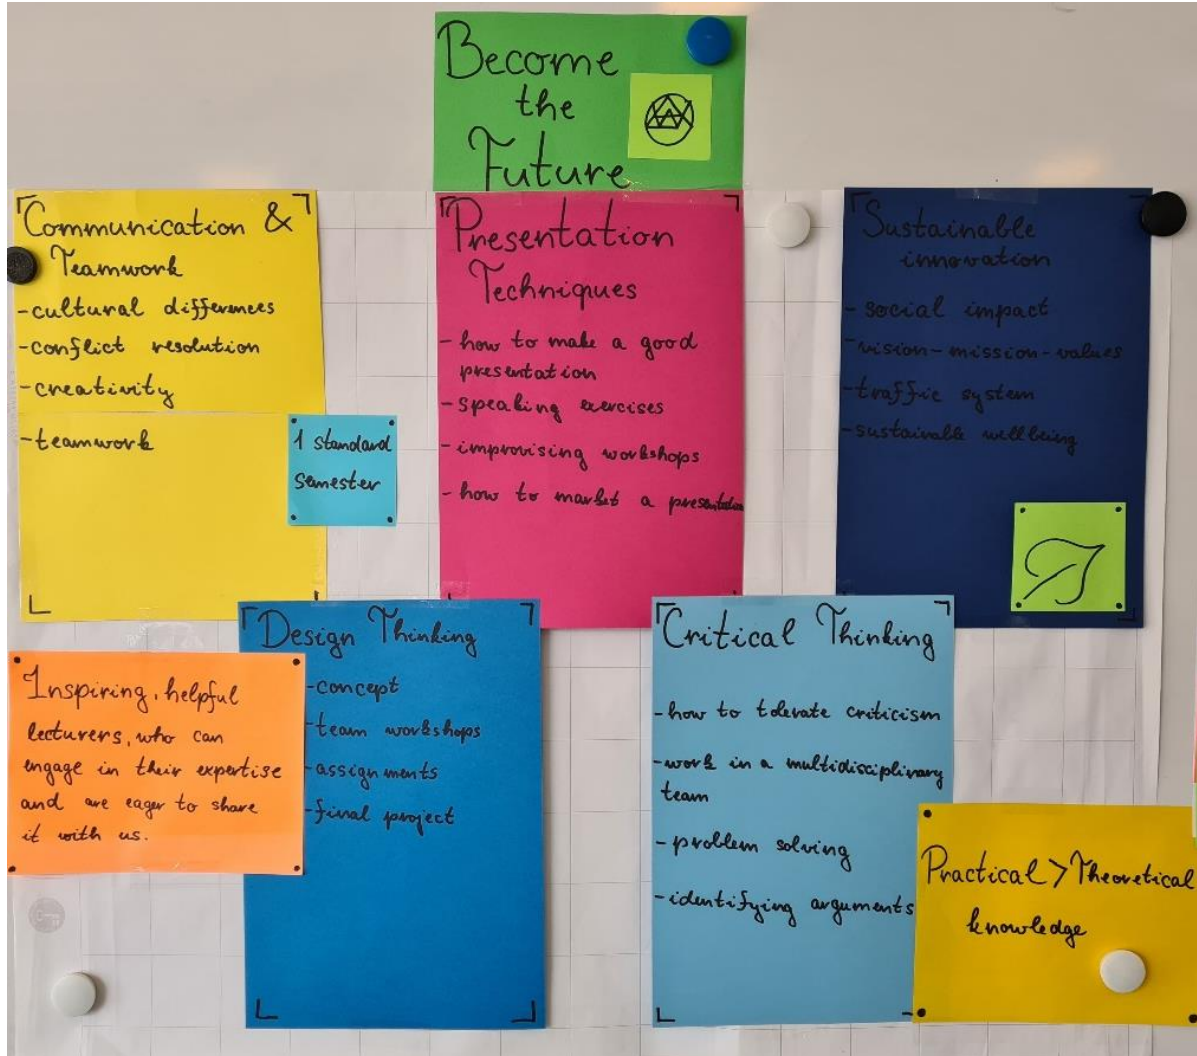 Become
the
Future
Communication &
Teamwork
-cultural differences
-conflict resolution
-creativity
-teamwork
1 standard
semester
Presentation
Techniques
-how to make a good
presentation
-speaking exercises
-improvising workshops
-how to market a presentation
Sustainable
innovation
-social impact
-vision-mission-values
-traffic system
-sustainable wellbeing
Inspiring, helpful
lecturers, who can
engage in their expertise
and are eager to share
it with us.
Design Thinking
-concept
-team workshops
-assignments
-final project
Critical Thinking
-how to tolerate criticism
-work in a multidisciplinary
team
-problem solving
-identifying arguments
Practical > Theoretical
knowledge